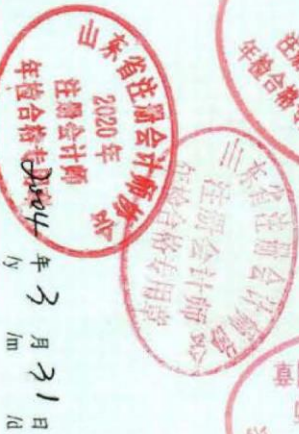 山东省注册会计师协会
2020年
注册会计师
年检合格专用章
山东省注册会计师协会
注册会计师
年检合格专用章
年 3 月 31 日
/y /m /d
年检合格